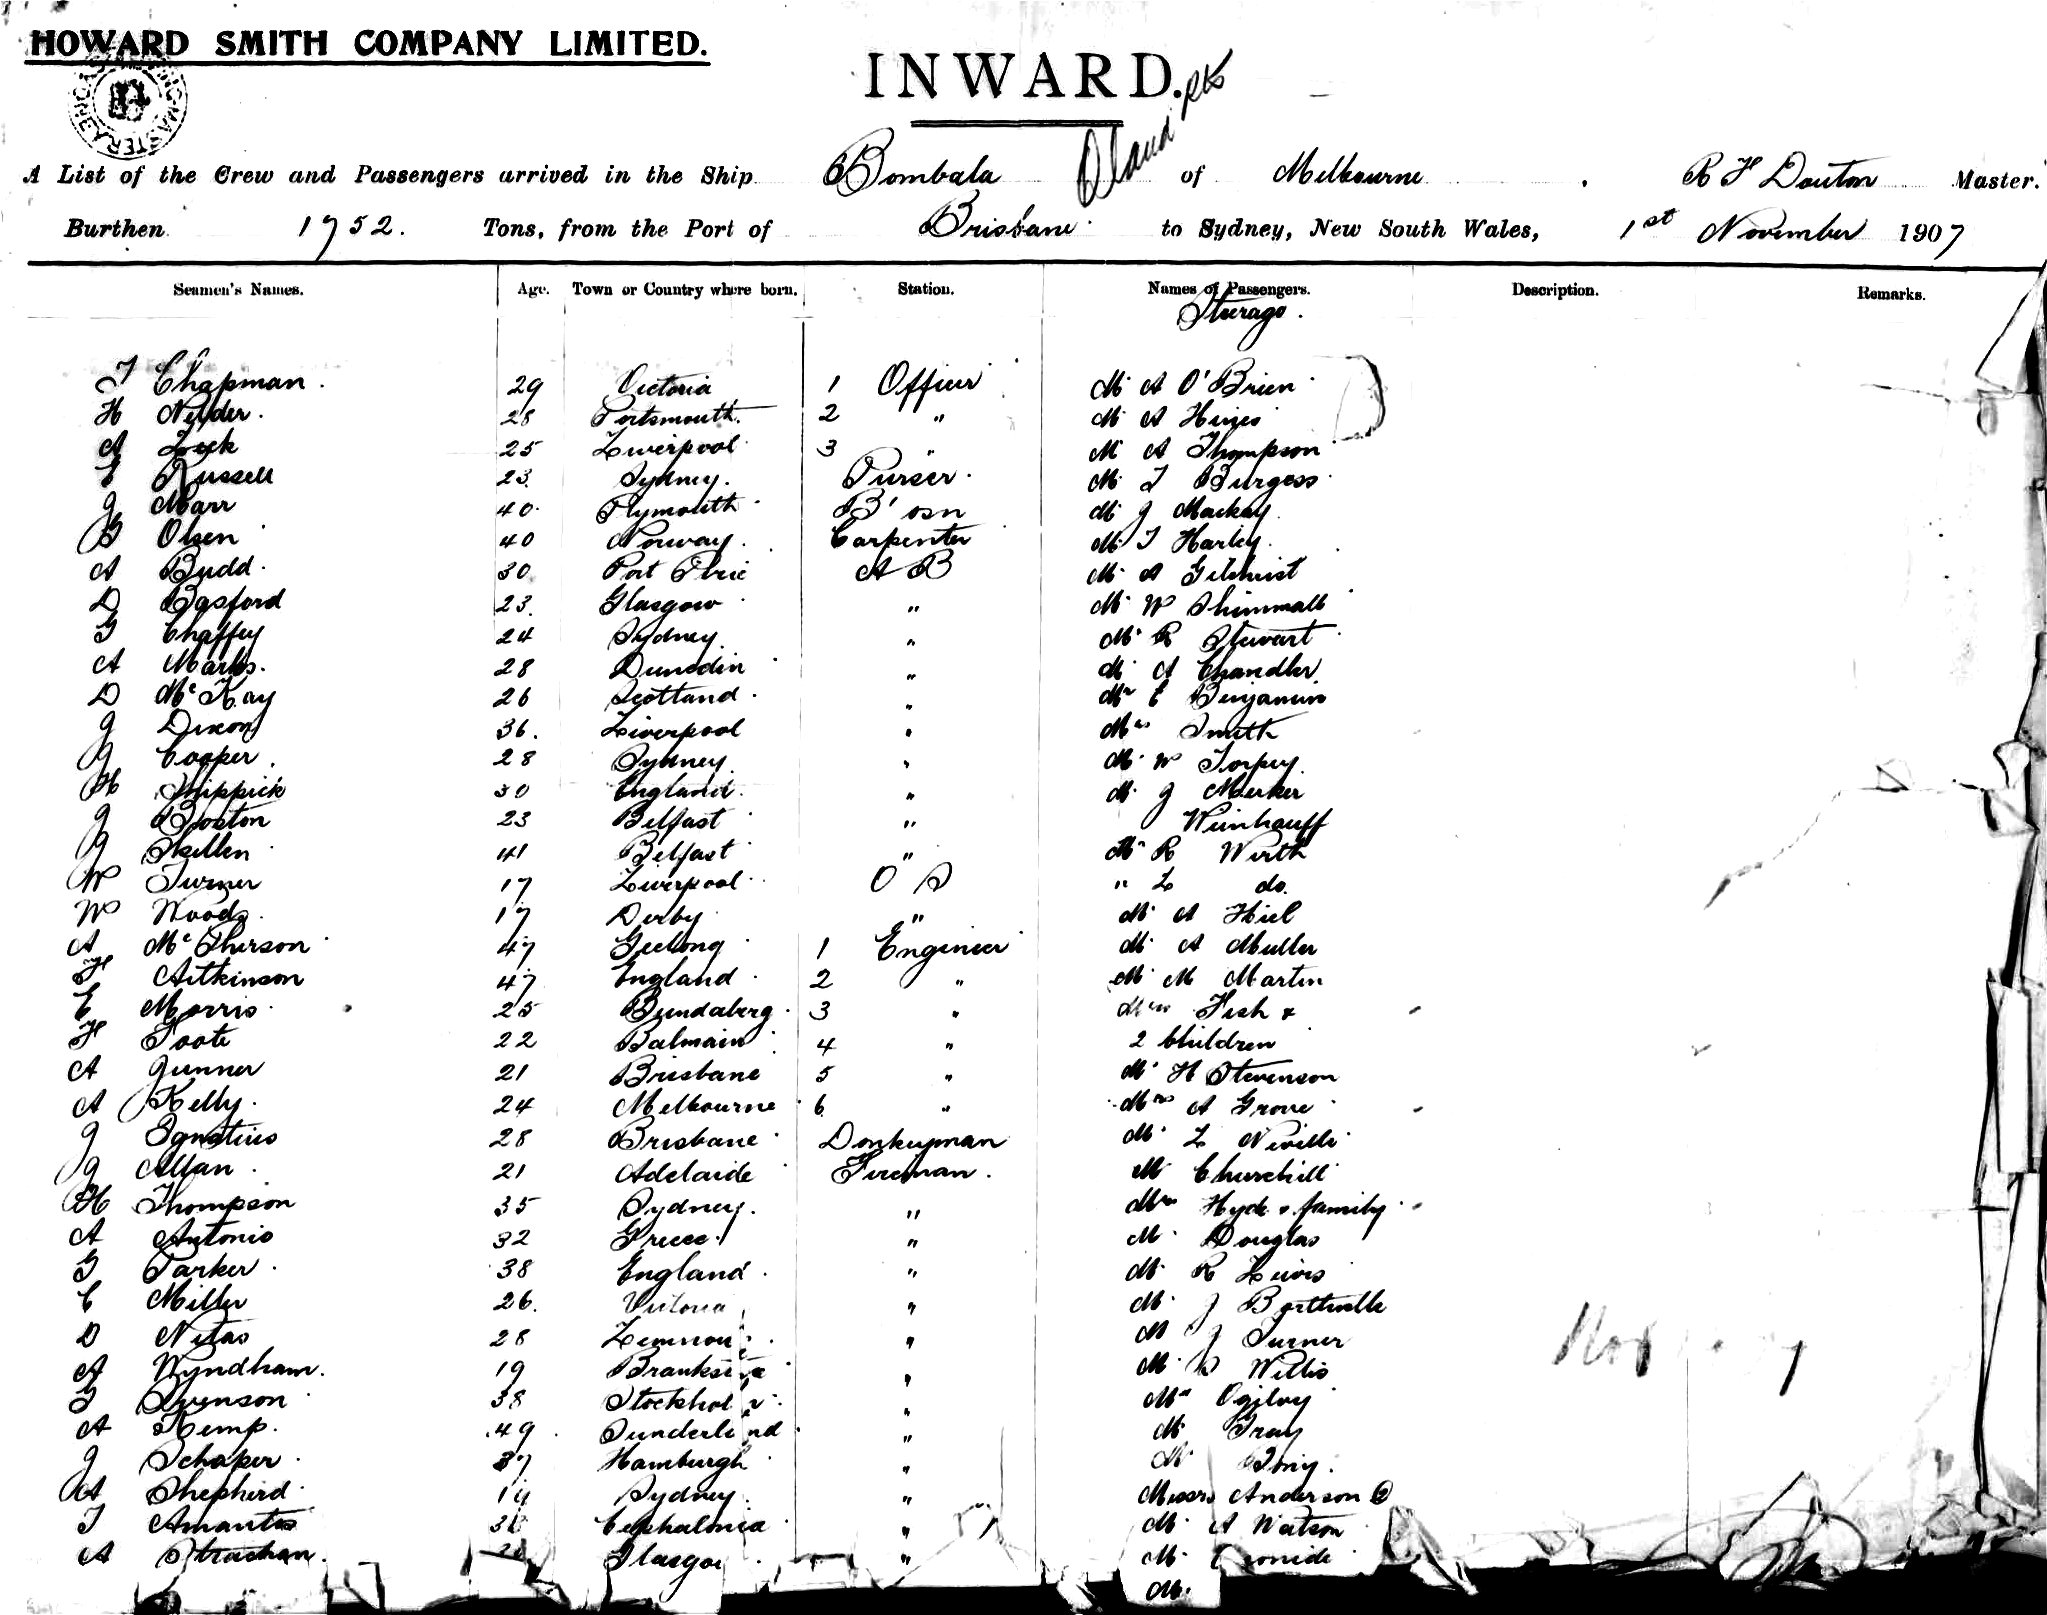 HOWARD SMITH COMPANY LIMITED.
INWARD.
A List of the Crew and Passengers arrived in the Ship Bombala of Melbourne R F Douton Master.
Burthen 1752. Tons, from the Port of Brisbane to Sydney, New South Wales, 1st November 1907
Seamen's Names. Age. Town or Country where born. Station. Names of Passengers. Description. Remarks.
Steerage.
T Chapman 29 Victoria 1 Officer Mr A O'Brien
H Nelder 28 Portsmouth 2 " Mr A Hines
A Zeck 25 Liverpool 3 " Mr A Thompson
E Russell 23 Sydney Purser Mr T Burgess
J Marr 40 Plymouth B'osn Mr J Mackay
B Olsen 40 Norway Carpenter Mr T Harley
A Budd 30 Port Pirie A B Mr A Gilchrist
D Basford 23 Glasgow " Mr W Shimmall
G Chaffey 24 Sydney " Mr R Stewart
A Marks 28 Dunedin " Mr A Chandler
D McKay 26 Scotland " Mr E Benjamin
J Dixon 36 Liverpool " Mrs Smith
J Cooper 28 Sydney " Mr W Torpey
H Shippick 30 England " Mr J Merker
J Boston 23 Belfast " Weinhauff
J Skillen 41 Belfast " Mr R Wirth
W Turner 17 Liverpool O S " L do.
W Woods 17 Derby " Mr A Hiel
A McPherson 47 Geelong 1 Engineer Mr A Muller
H Aitkinson 47 England 2 " Mr M Martin
E Morris 25 Bundaberg 3 " Mrs Fish &
H Foote 22 Balmain 4 " 2 Children
A Gunner 21 Brisbane 5 " Mr H Stevenson
A Kelly 24 Melbourne 6 " Mrs A Grove
J Ignatius 28 Brisbane Donkeyman Mr L Neville
J Allan 21 Adelaide Fireman Mr Churchill
H Thompson 35 Sydney " Mrs Hyde & family
A Antonio 32 Greece " Mr Douglas
G Parker 38 England " Mr R Lewis
C Miller 26 Victoria " Mr J
D Nitas 28 " Mr J Turner
A Wyndham 19 " Mr S Willis
G Svenson 38 Stockholm " Mr Ogilvy
A Kemp 49 Sunderland " Mr Gray
J Schaper 37 Hamburgh " Mr
A Shepherd 19 Sydney " Messrs Anderson 2
T Amantos Cephalonia " Mr A Watson
A Strachan Glasgow " Mr
Mr